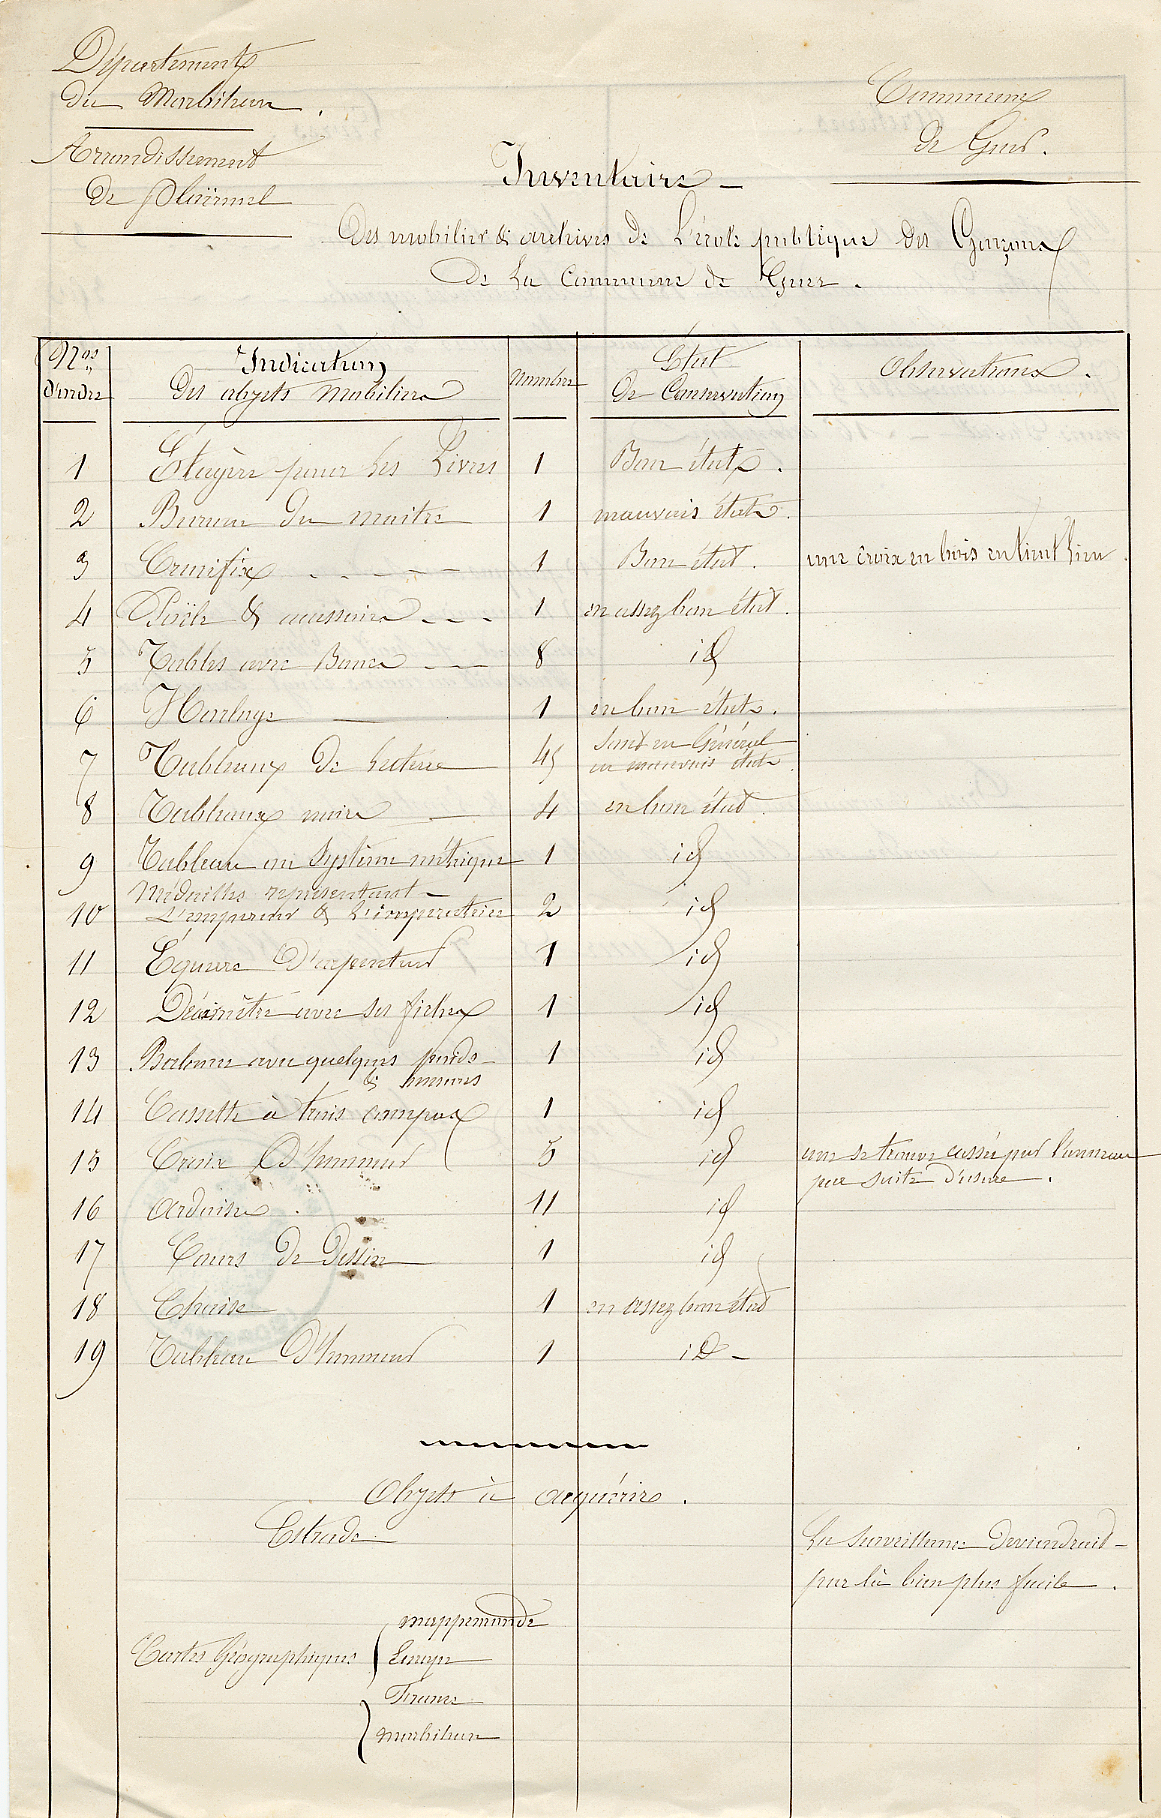 Département
du Morbihan.
Arrondissement
de Ploërmel
Commune
de Guer.
Inventaire
Des mobilier & archives de l'école publique des Garçons
de la Commune de Guer.
Nos d'ordre | Indication des objets mobiliers | Nombre | État de Conservation | Observations.
1 Etagère pour les Livres 1 Bon état.
2 Bureau du maitre 1 mauvais état.
3 Crucifix 1 Bon état. une croix en bois en tient lieu.
4 Poële & accessoires 1 en assez bon état.
5 Tables avec Bancs 8 id
6 Horloge 1 en bon état.
7 Tableaux de lecture 45 sont en Général
en mauvais état.
8 Tableaux noirs 4 en bon état.
9 Tableau du Système métrique 1 id
Médailles représentant
10 L'empereur & L'impératrice 2 id
11 Équerre D'arpenteur 1 id
12 Décamètre avec ses fiches 1 id
13 Balance avec quelques poids 1 id
& mesures
14 Cassette à trois compas 1 id
15 Croix D'honneur 5 id une se trouve cassée par l'anneau
par suite d'usure.
16 Ardoises. 11 id
17 Cours de Dessin 1 id
18 Chaise 1 en assez bon état
19 Tableau D'honneur 1 id
Objets à acquérir.
Estrade La surveillance deviendrait
par là bien plus facile.
mappemonde
Cartes Géographiques Europe
France
morbihan